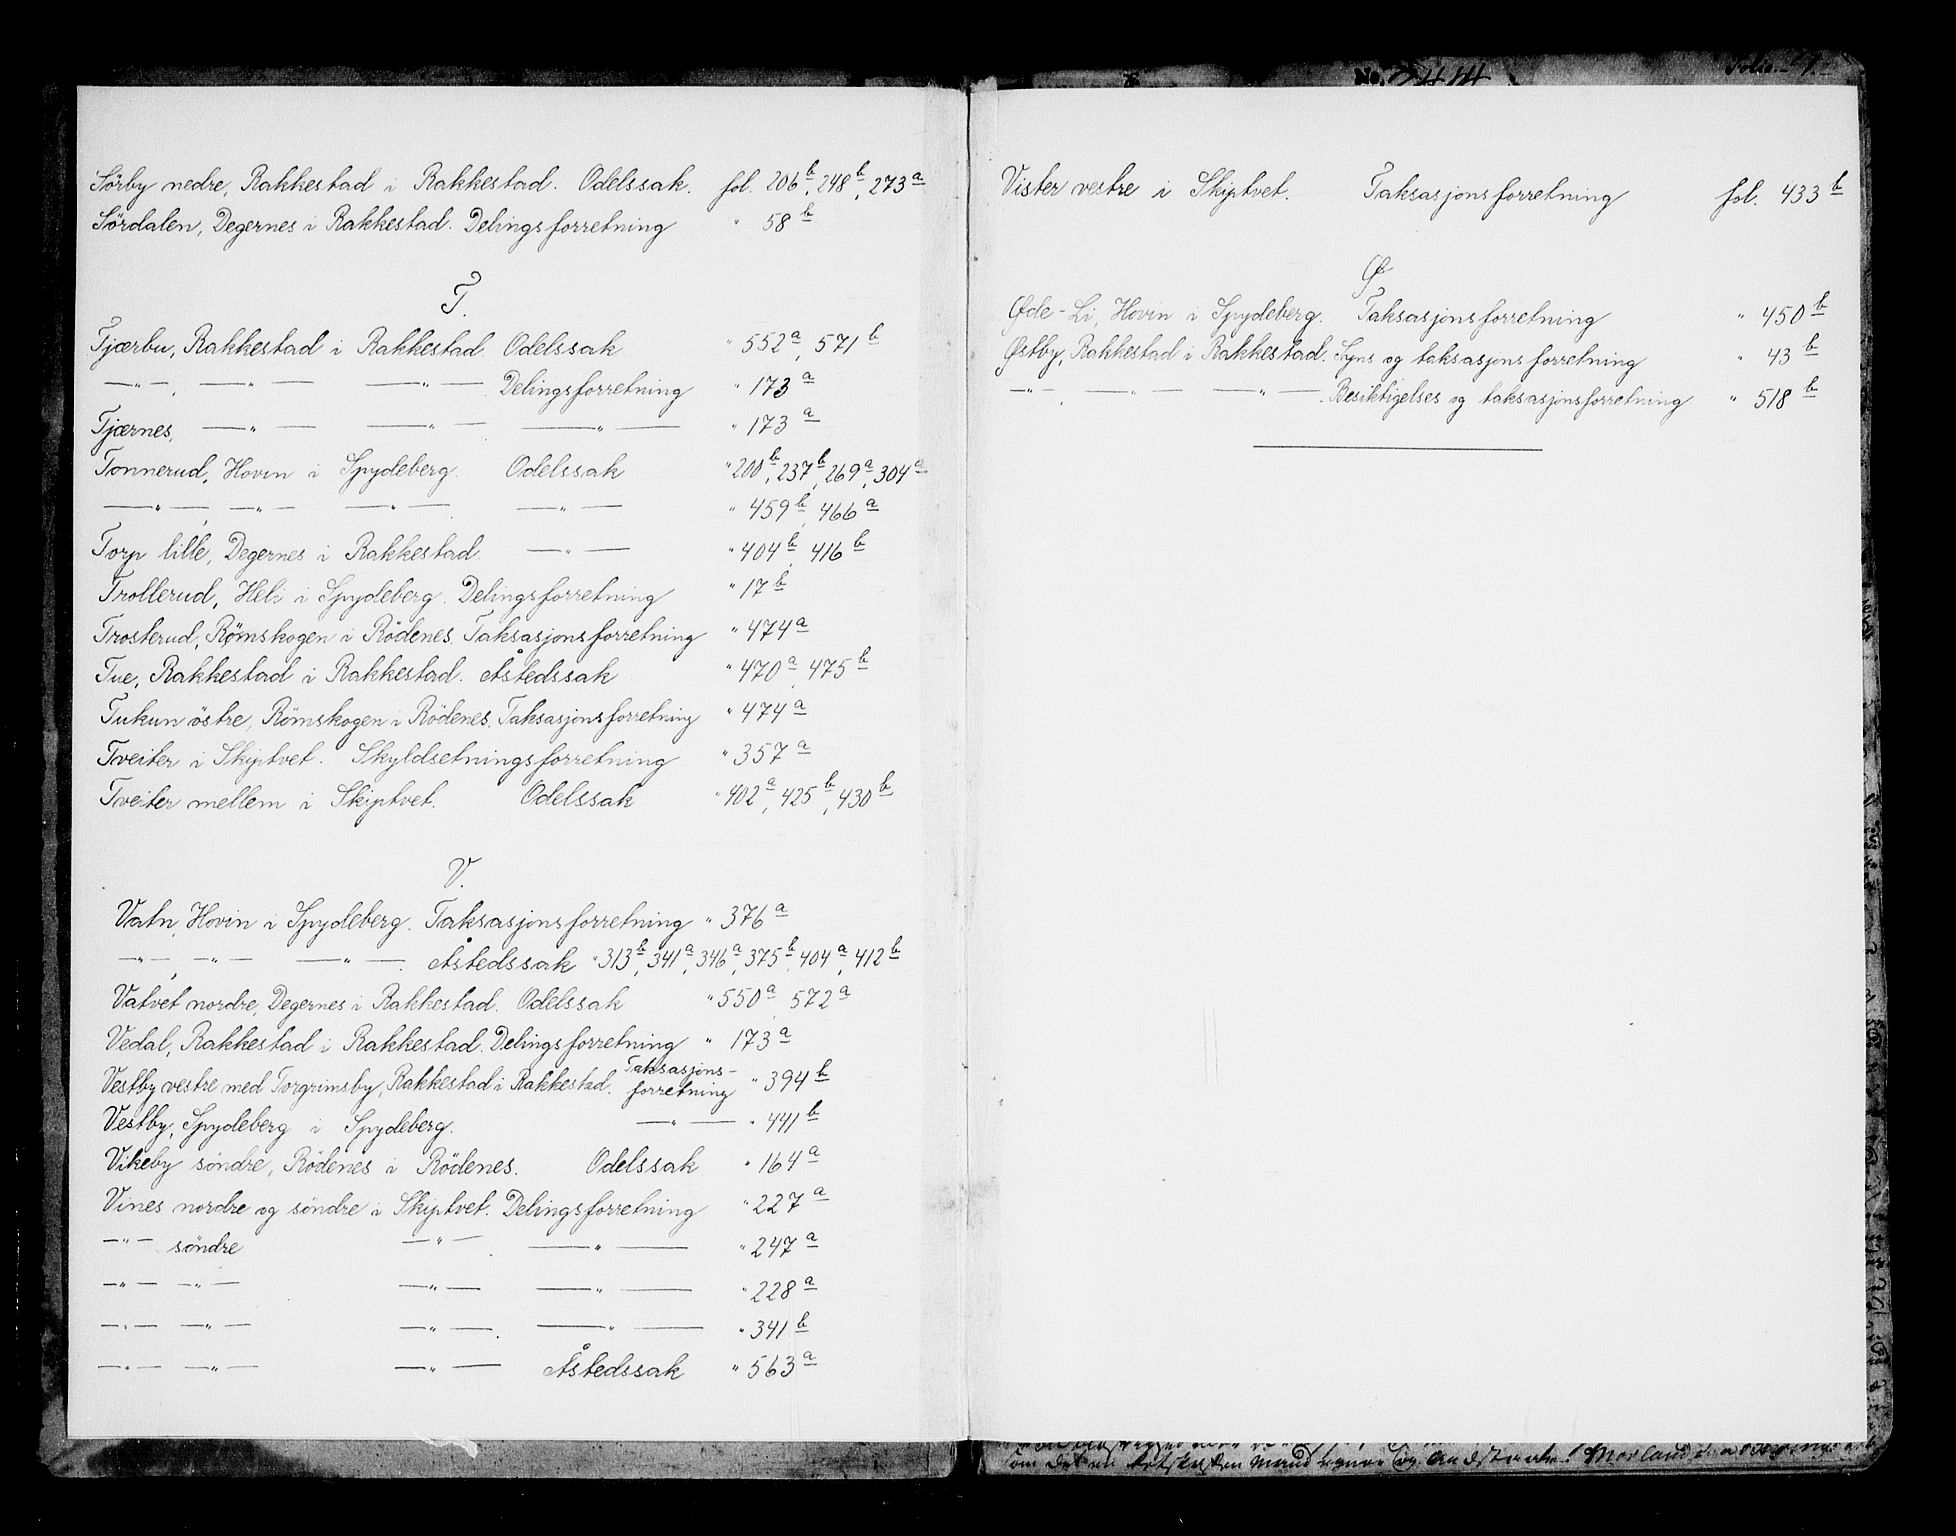 Sörby nedre, Rakkestad i Rakkestad. Odelssak. fol. 206 b, 248 b, 273 a
Sördalen, Degernes i Rakkestad. Delingsforretning " 58 b
T.
Tjærbu, Rakkestad i Rakkestad. Odelssak " 552 a, 571 b
—"—, —"— —"— Delingsforretning " 173 a
Tjærnes, —"— —"— —"— " 173 a
Tonnerud, Hovin i Spydeberg. Odelssak " 200 b, 237 b, 269 a, 304 a
—"—, —"— —"—. —"— " 459 b, 466 a
Torp lille, Degernes i Rakkestad. —"— " 404 b, 416 b
Trollerud, Heli i Spydeberg. Delingsforretning " 17 b
Trosterud, Rømskogen i Rödenes. Taksasjonsforretning " 474 a
Tue, Rakkestad i Rakkestad. Åstedssak " 470 a, 475 b
Tukun östre, Römskogen i Rödenes. Taksasjonsforretning " 474 a
Tveiter i Skiptvet. Skyldsetningsforretning " 357 a
Tveiter mellem i Skiptvet. Odelssak " 402 a, 425 b, 430 b
V.
Vatn, Hovin i Spydeberg. Taksasjonsforretning " 376 a
—"—, —"— —"—. Åstedssak " 313 b, 341 a, 346 a, 375 b, 404 a, 412 b
Vatvet nordre, Degernes i Rakkestad. Odelssak " 550 a, 572 a
Vedal, Rakkestad i Rakkestad. Delingsforretning " 173 a
Vestby vestre med Torgrimsby, Rakkestad i Rakkestad. Taksasjons-forretning " 394 b
Vestby, Spydeberg i Spydeberg. —"— " 441 b
Vikeby söndre, Rödenes i Rödenes. Odelssak " 164 a
Vines nordre og söndre i Skiptvet. Delingsforretning " 227 a
—"— söndre —"—. —"— " 247 a
—"— —"— —"— —"— " 228 a
—"— —"— —"—. —"— " 341 b
—"— —"— —"— Åstedssak " 563 a
No. 3414
Folio 1.
Vister vestre i Skiptvet. Taksasjonsforretning fol. 433 b
Ø
Øde-Li, Hovin i Spydeberg. Taksasjonsforretning " 450 b
Østby, Rakkestad i Rakkestad. Syns og taksasjonsforretning " 43 b
—"—, —"— —"—. Besiktigelses og taksasjonsforretning " 518 b